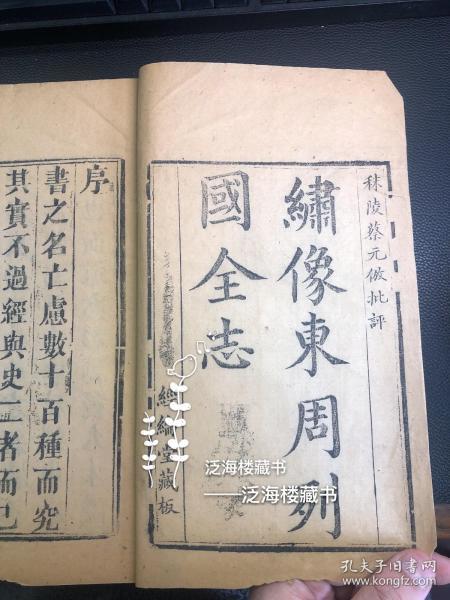 秣陵蔡元倣批評
繡像東周列
國全志
堂藏板
序
書之名亡慮數十百種而究
其實不過經與史二者而已
泛海楼藏书
——泛海楼藏书
孔夫子旧书网
www.kongfz.com